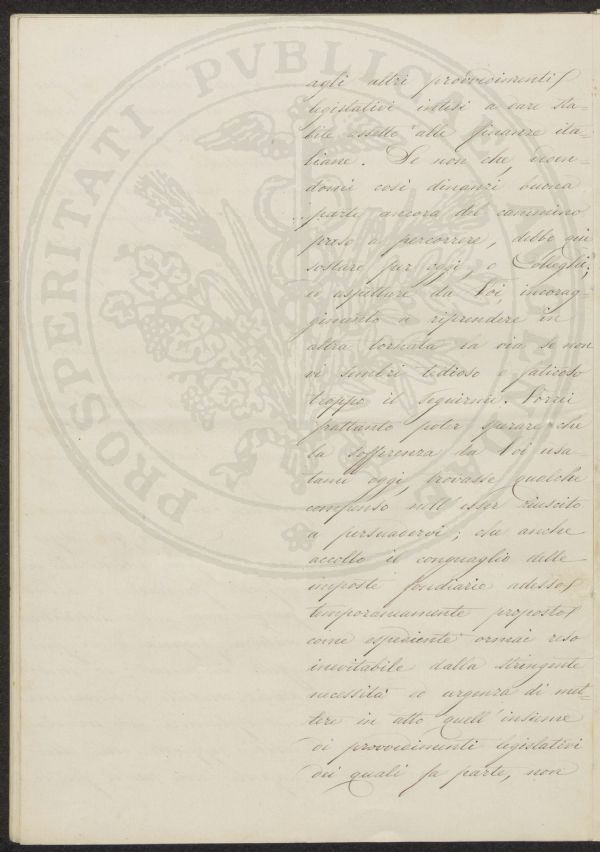 PROSPERITATI PVBLICAE AVGENDAE
agli altri provvedimenti
legislativi intesi a dare sta-
bile assetto alle finanze ita-
liane. Se non che, veden-
domi così dinanzi buona
parte ancora del cammino
preso a percorrere, debbo qui
sostare per oggi, o Colleghi,
ed aspettare da Voi, incorag-
gimento a riprendere in
altra tornata la via, se non
vi sembri tedioso e faticoso
troppo il seguirmi. Vorrei
frattanto poter sperare che
la sofferenza da Voi usa-
tami oggi, trovasse qualche
compenso nell'esser riuscito
a persuadervi; che anche
accolto il conguaglio delle
imposte fondiarie adesso
temporaneamente proposto
come espediente ormai reso
inevitabile dalla stringente
necessità ed urgenza di met-
tere in atto quell'insieme
di provvedimenti legislativi
dei quali fa parte, non